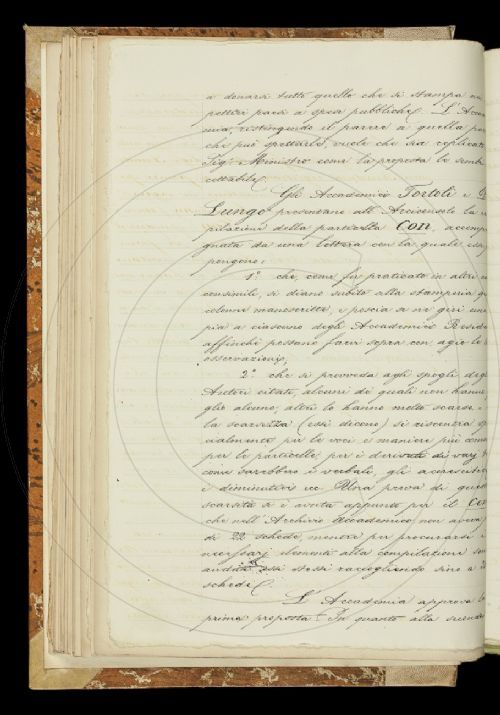 a donarsi tutto quello che si stampa nei
pettivi paesi a spese pubbliche. L'Acca
mia, restringendo il parere a quella par
che può spettarle, vuole che sia replicato
Sig. Ministro come la proposta le sembr
cettabile.
Gli Accademici Tortoli e
Lungo presentano all'Arciconsolo la
pilazione della particella Con, accomp
gnata da una lettera con la quale
pongono:
1.° che, come fu praticato in altri
consimile, si diano subito alla stamperia
colonne manoscritte, e poscia se ne giri una
pia a ciascuno degli Accademici Reside
affinchè possano farvi sopra con agio le
osservazioni;
2.° che si provveda agli spogli degli
Autori citati, alcuni de' quali non hanno
glio alcuno, altri lo hanno molto scarso: e
la scarsezza (essi dicono) si riscontra
cialmente per le voci e maniere più comu
per le particelle, per i derivati di varj
come sarebbero i verbali, gli accrescitivi
i diminutivi ec. Una prova di quest
scarsità si è avuta appunto per il Con
che nell'Archivio Accademico non aveva
di 22 schede, mentre per procurarsi i
necessarj elementi alla compilazione son
andati essi stessi raccogliendo sino a
schede.
L'Accademia approva la
prima proposta. In quanto alla seconda